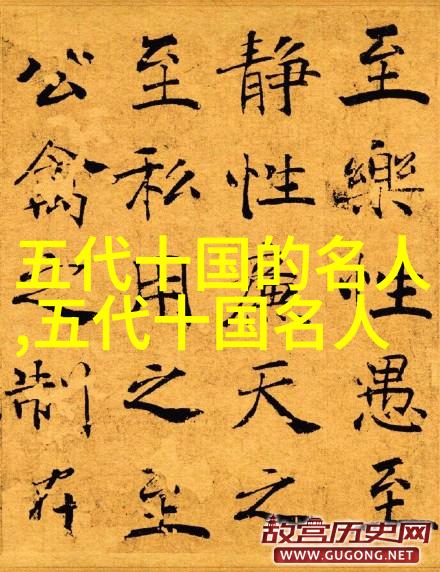 至樂性愚至
静性廉天之
至私用之至
公禽之制在
五代十国的名人
,五代十国名人
故宫历史网
WWW.GUGONG.NET